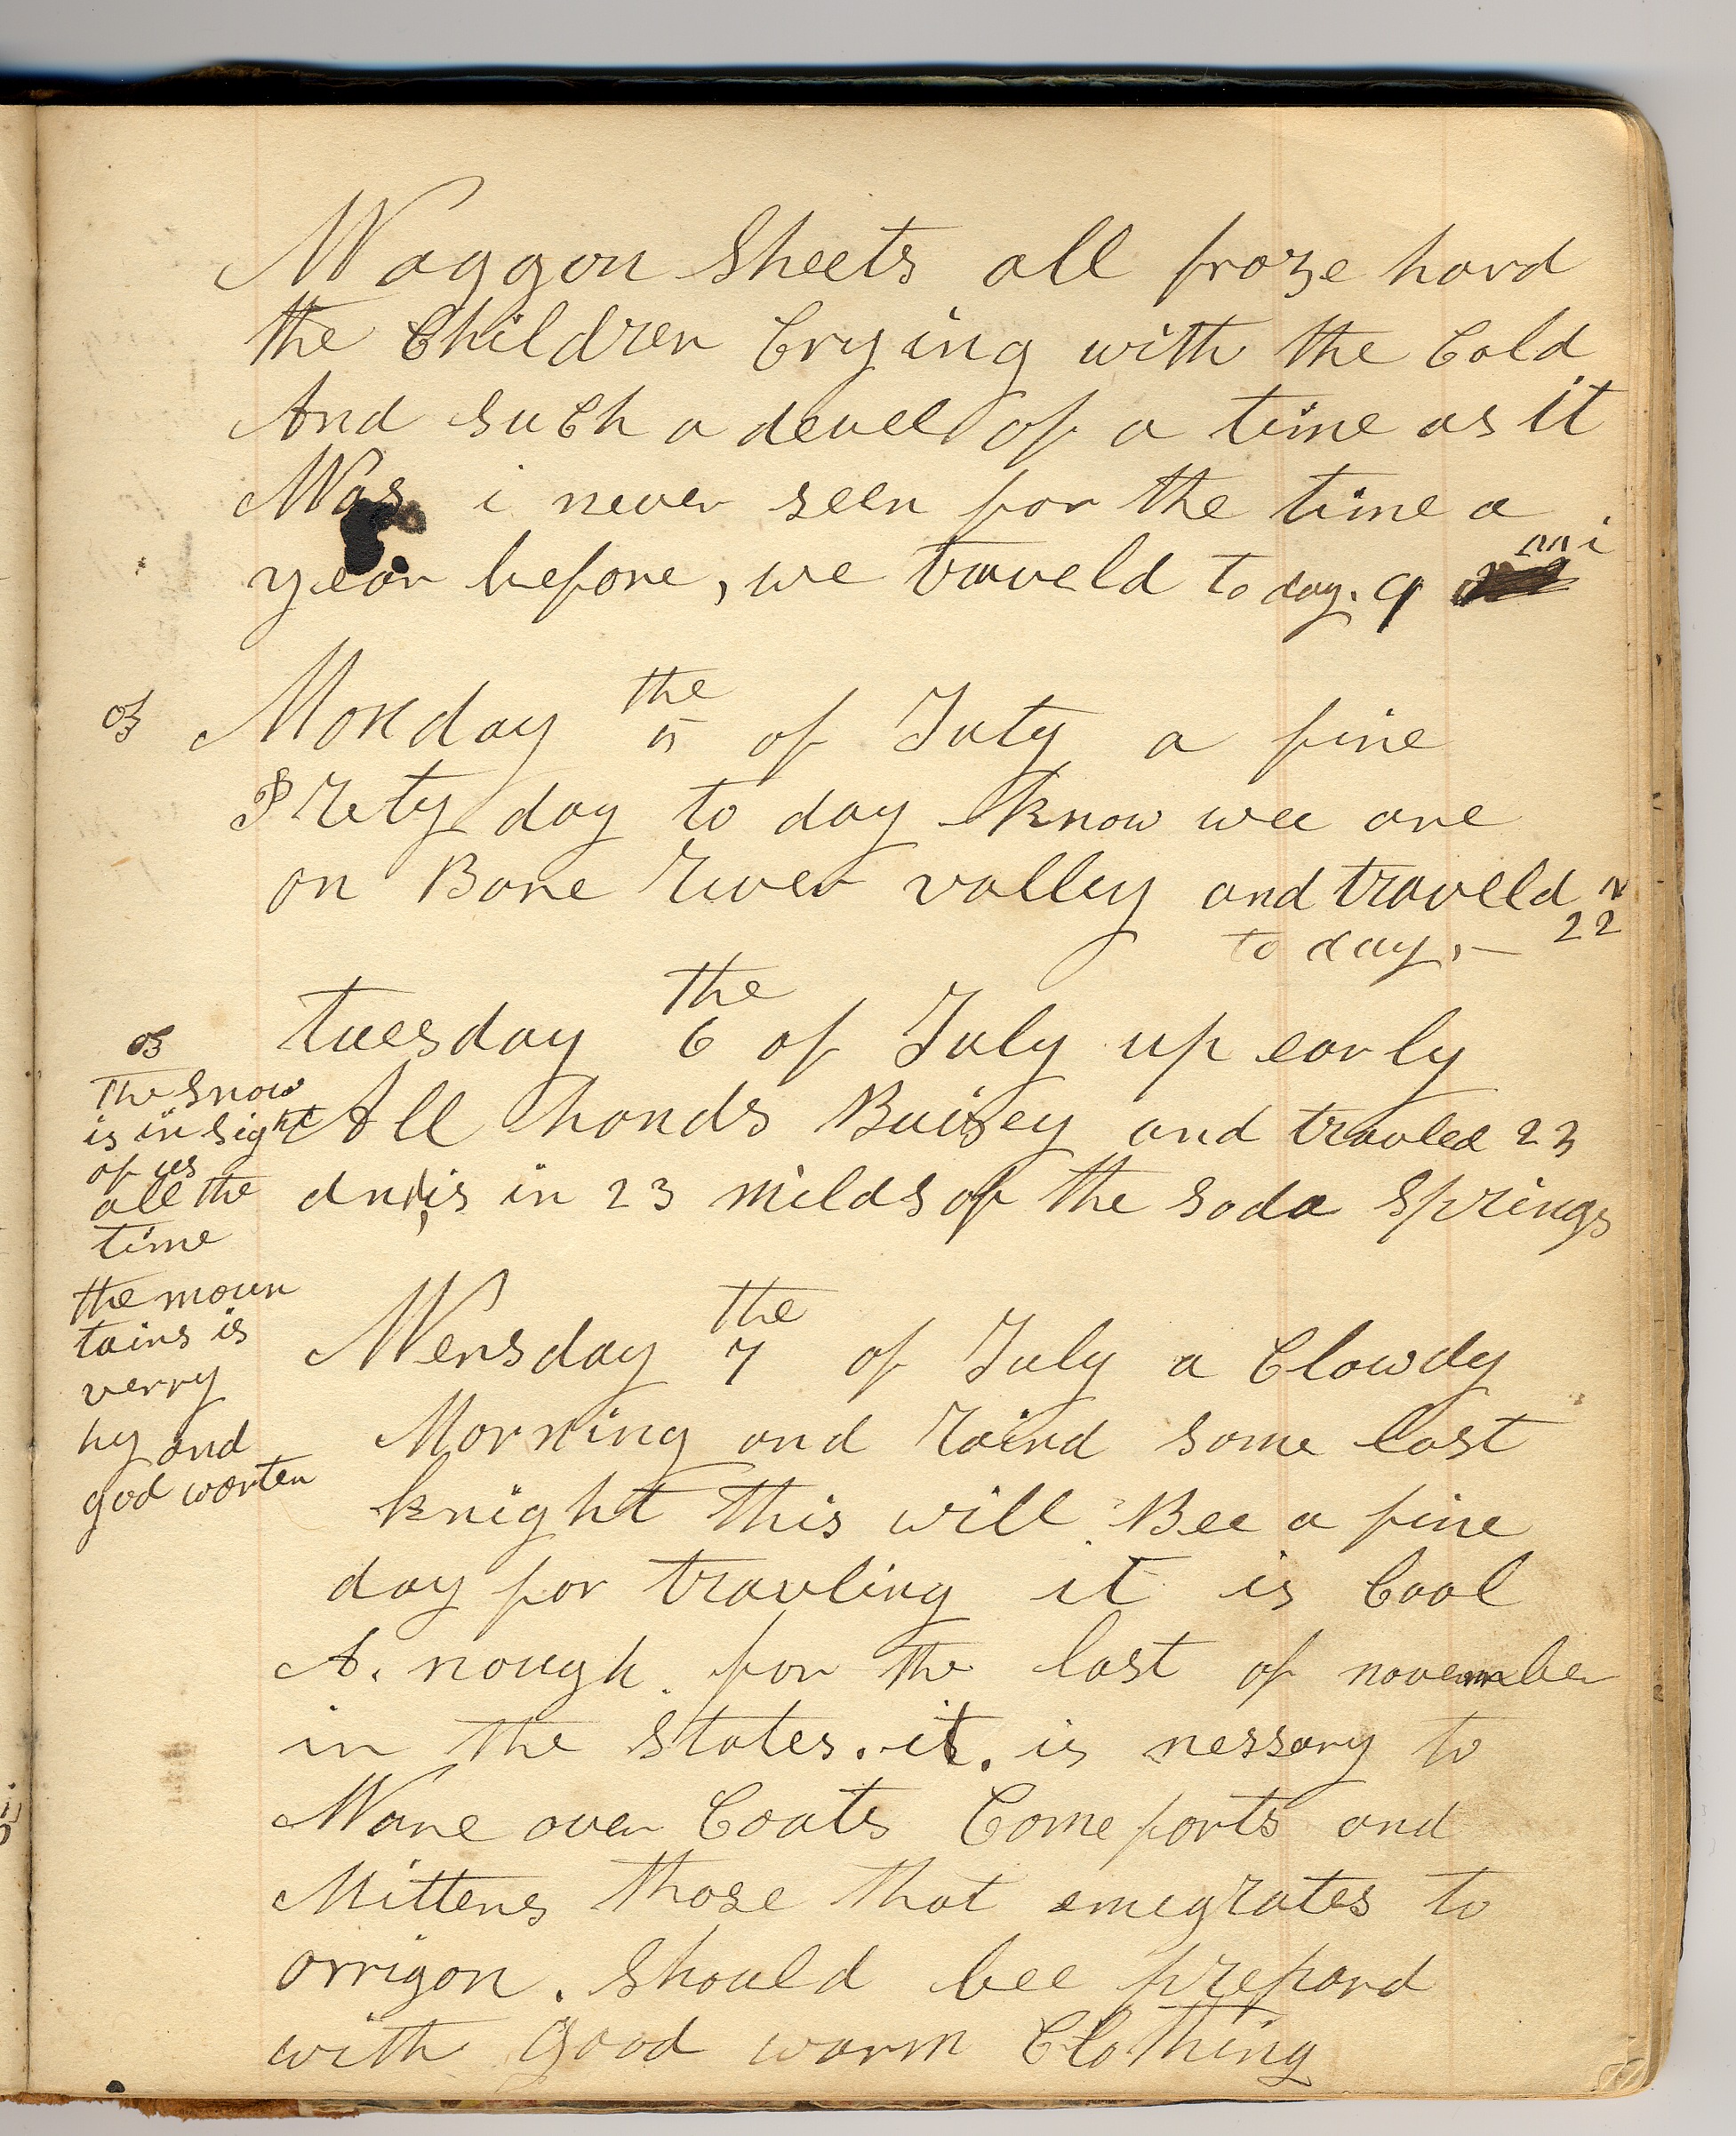 Waggon Sheets all froze hard
the Children Crying with the Cold
And such a devel of a time as it
Was i never seen for the time a
mi
year before, we traveld to day. 9
the
Monday 5 of July a fine
Prety day to day know wee are
on Bare River valley and traveld
to day,— 22
the
tuesday 6 of July up early
All hands Buisey and travled 23
and is in 23 milds of the soda springs
The snow
is in sight
of us
all the
time
the moun
tains is
verry
hy and
god worten
the
Wensday 7 of July a Clowdy
Morning and raind some last
knight this will Bee a fine
day for travling it is Cool
A. nough. for the last of november
in the States. it. is nessary to
Ware over Coats Come forts and
Mittens those that emegrates to
orrigon. should bee prepard
with good warm Clothing